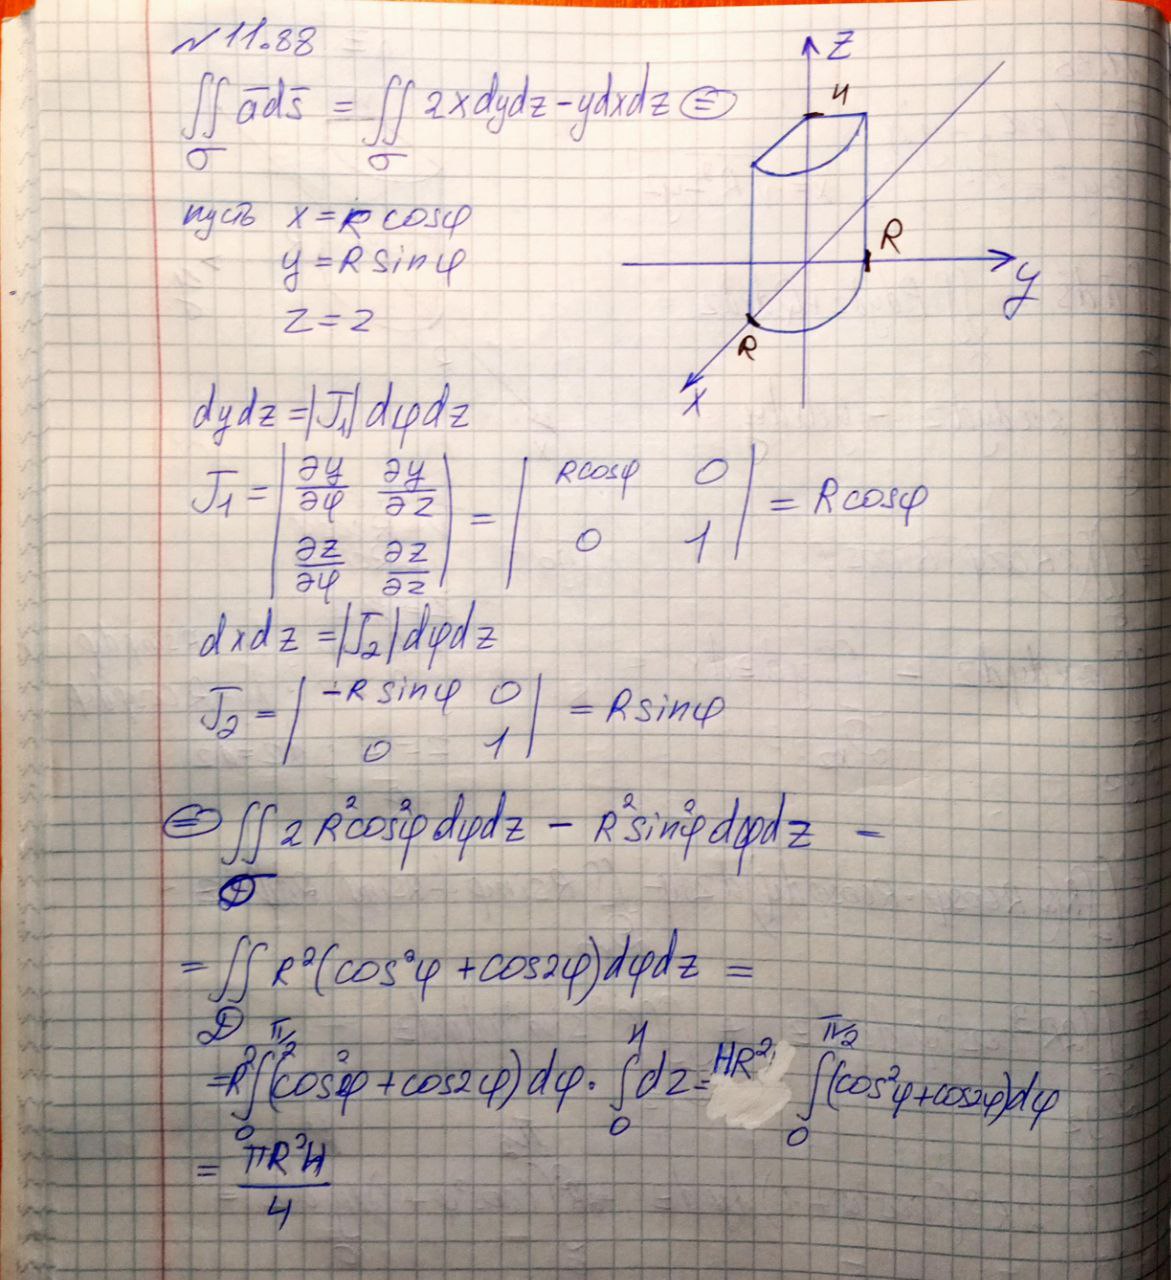 №11.88
∬_σ a̅ds̅ = ∬_σ 2xdydz - ydxdz ⊜
пусть x = R cosφ
y = R sinφ
z = z
dydz = |J₁| dφdz
J₁ = | ∂y/∂φ ∂y/∂z | = | Rcosφ 0 | = Rcosφ
| ∂z/∂φ ∂z/∂z | | 0 1 |
dxdz = |J₂| dφdz
J₂ = | -R sinφ 0 | = R sinφ
| 0 1 |
⊜ ∬_D 2R²cos²φ dφdz - R²sin²φ dφdz -
= ∬_D R²(cos²φ + cos2φ)dφdz =
= R² ∫₀^{π/2} (cos²φ + cos2φ) dφ · ∫₀^H dz = HR² ∫₀^{π/2} (cos²φ + cos2φ)dφ
= πR²H/4
z
H
R
y
R
x